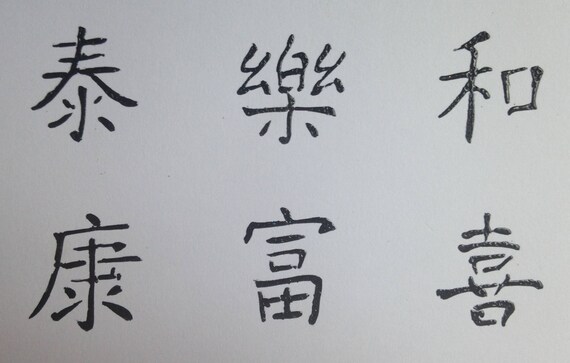 泰 樂 和
康 富 喜